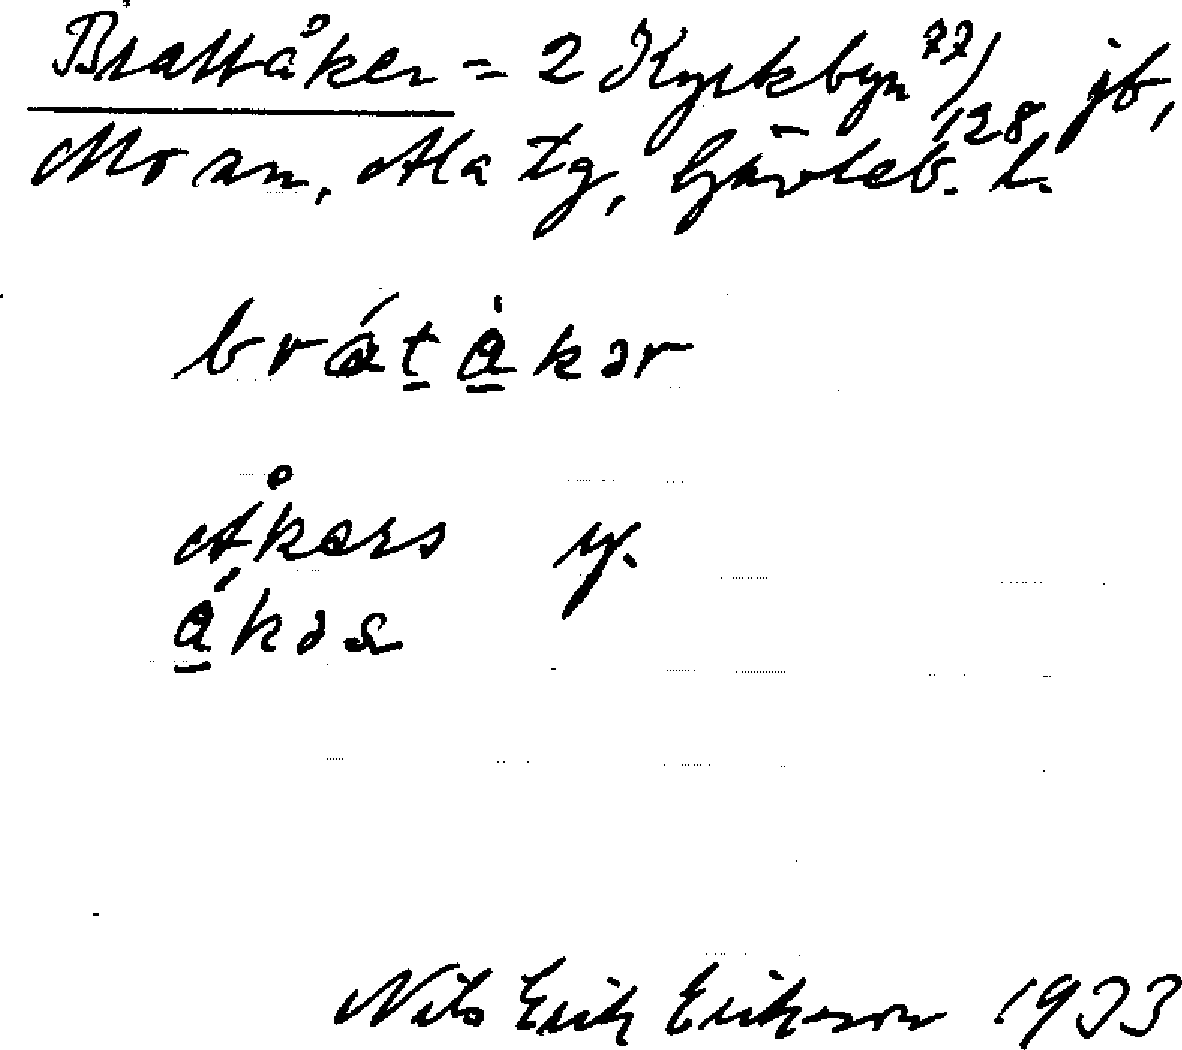 Brattåker = 2 Kyrkbyn 77/128 jb,
Mo sn, Ala tg, Gävleb. l.
brátåkər
Åkers y.
ákəs
Nils Erik Erikson 1933